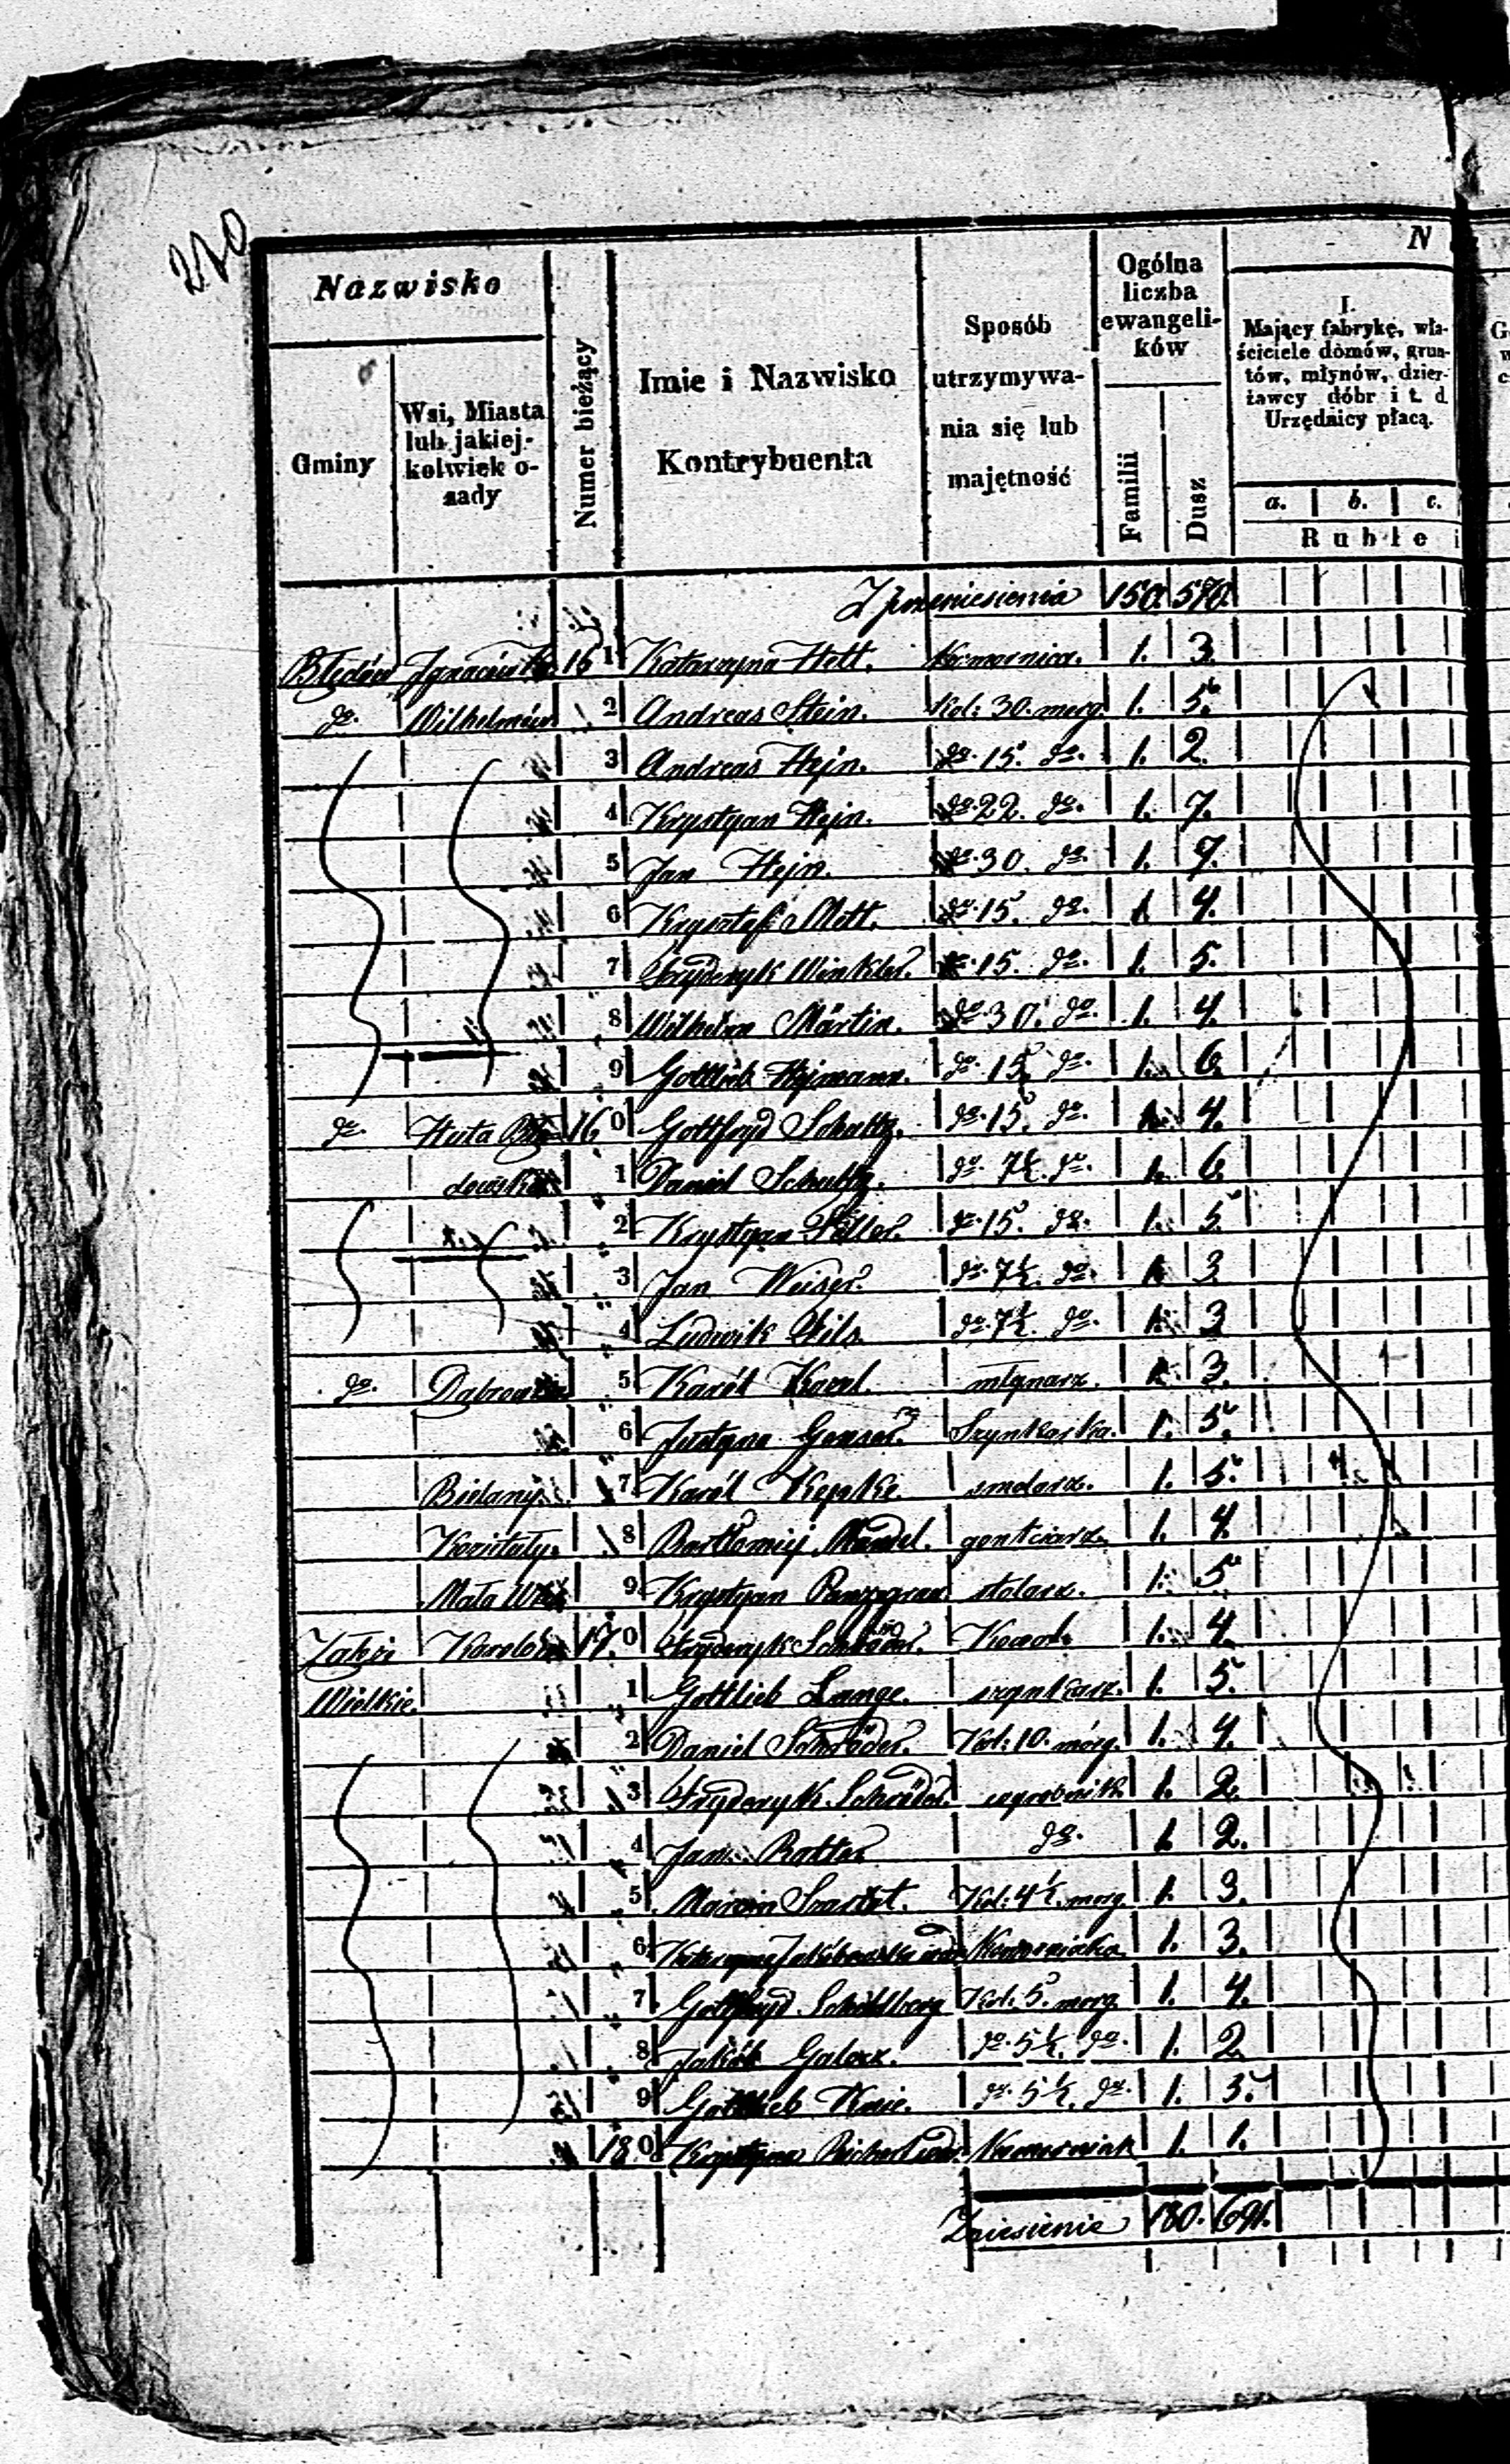 220
N
Nazwisko
Gminy
Wsi, Miasta lub jakiej-kolwiek o-sady
Numer bieżący
Imie i Nazwisko Kontrybuenta
Sposób utrzymywa-nia się lub majętność
Ogólna liczba ewangeli-ków
Familii
Dusz
I.
Mający fabrykę, wła-
ściciele domów, grun-
tów, młynów, dzier-
żawcy dóbr i t. d.
Urzędnicy płacą.
a. b. c.
Ruble i
Z przeniesienia 150. 570.
Błędów 15 1 Katarzyna Hett. 1. 3.
do. Wilhelmów 2 Andreas Stein. Kol: 30. morg. 1. 5.
3 Andreas Hejn. do. 15. do. 1. 2.
4 Krystyan Hejn. do. 22. do. 1. 7.
5 Jan Hejn. do. 30. do. 1. 7.
6 Krysztof do. 15. do. 1. 4.
7 Fryderyk Winkler. do. 15. do. 1. 5.
8 Wilhelm Martin. do. 30. do. 1. 4.
9 Gottlieb Hejmann. do. 15. do. 1. 6.
do. Huta Błę- 16 0 Gottfryd Schultz. do. 15. do. 1. 4.
dowska 1 Daniel Schultz. do. 7½. do. 1. 6.
2 Krystyan do. 15. do. 1. 5.
3 Jan Weiser. do. 7½. do. 1. 3.
4 Ludwik do. 7½. do. 1. 3
do. 5 Karól młynarz. 1. 3.
6 Justyna Szynkarka. 1. 5.
Bielany. 7 Karól Kepke smolarz. 1. 5.
8 Bartłomiej gontciarz. 1. 4.
Mała Wieś 9 Krystyan stolarz. 1. 5.
Załuże 17. 0 Fryderyk Schröder. Kowal. 1. 4.
Wielkie. 1 Gottlieb Lange. szynkarz. 1. 5.
2 Daniel Schröder. Kol: 10. morg. 1. 4.
3 Fryderyk Schröder. zagrodnik 1. 2.
4 Jan do. 1. 2.
5 Marcin Kol: 4½. morg. 1. 3.
6 1. 3.
7 Gottfryd Kol: 5. morg. 1. 4.
8 Jakób do. 5½. do. 1. 2.
9 Gottlieb do. 5½. do. 1. 5.
18. 0 Krystyna Komorniak 1. 1.
Zniesienie 180. 691.